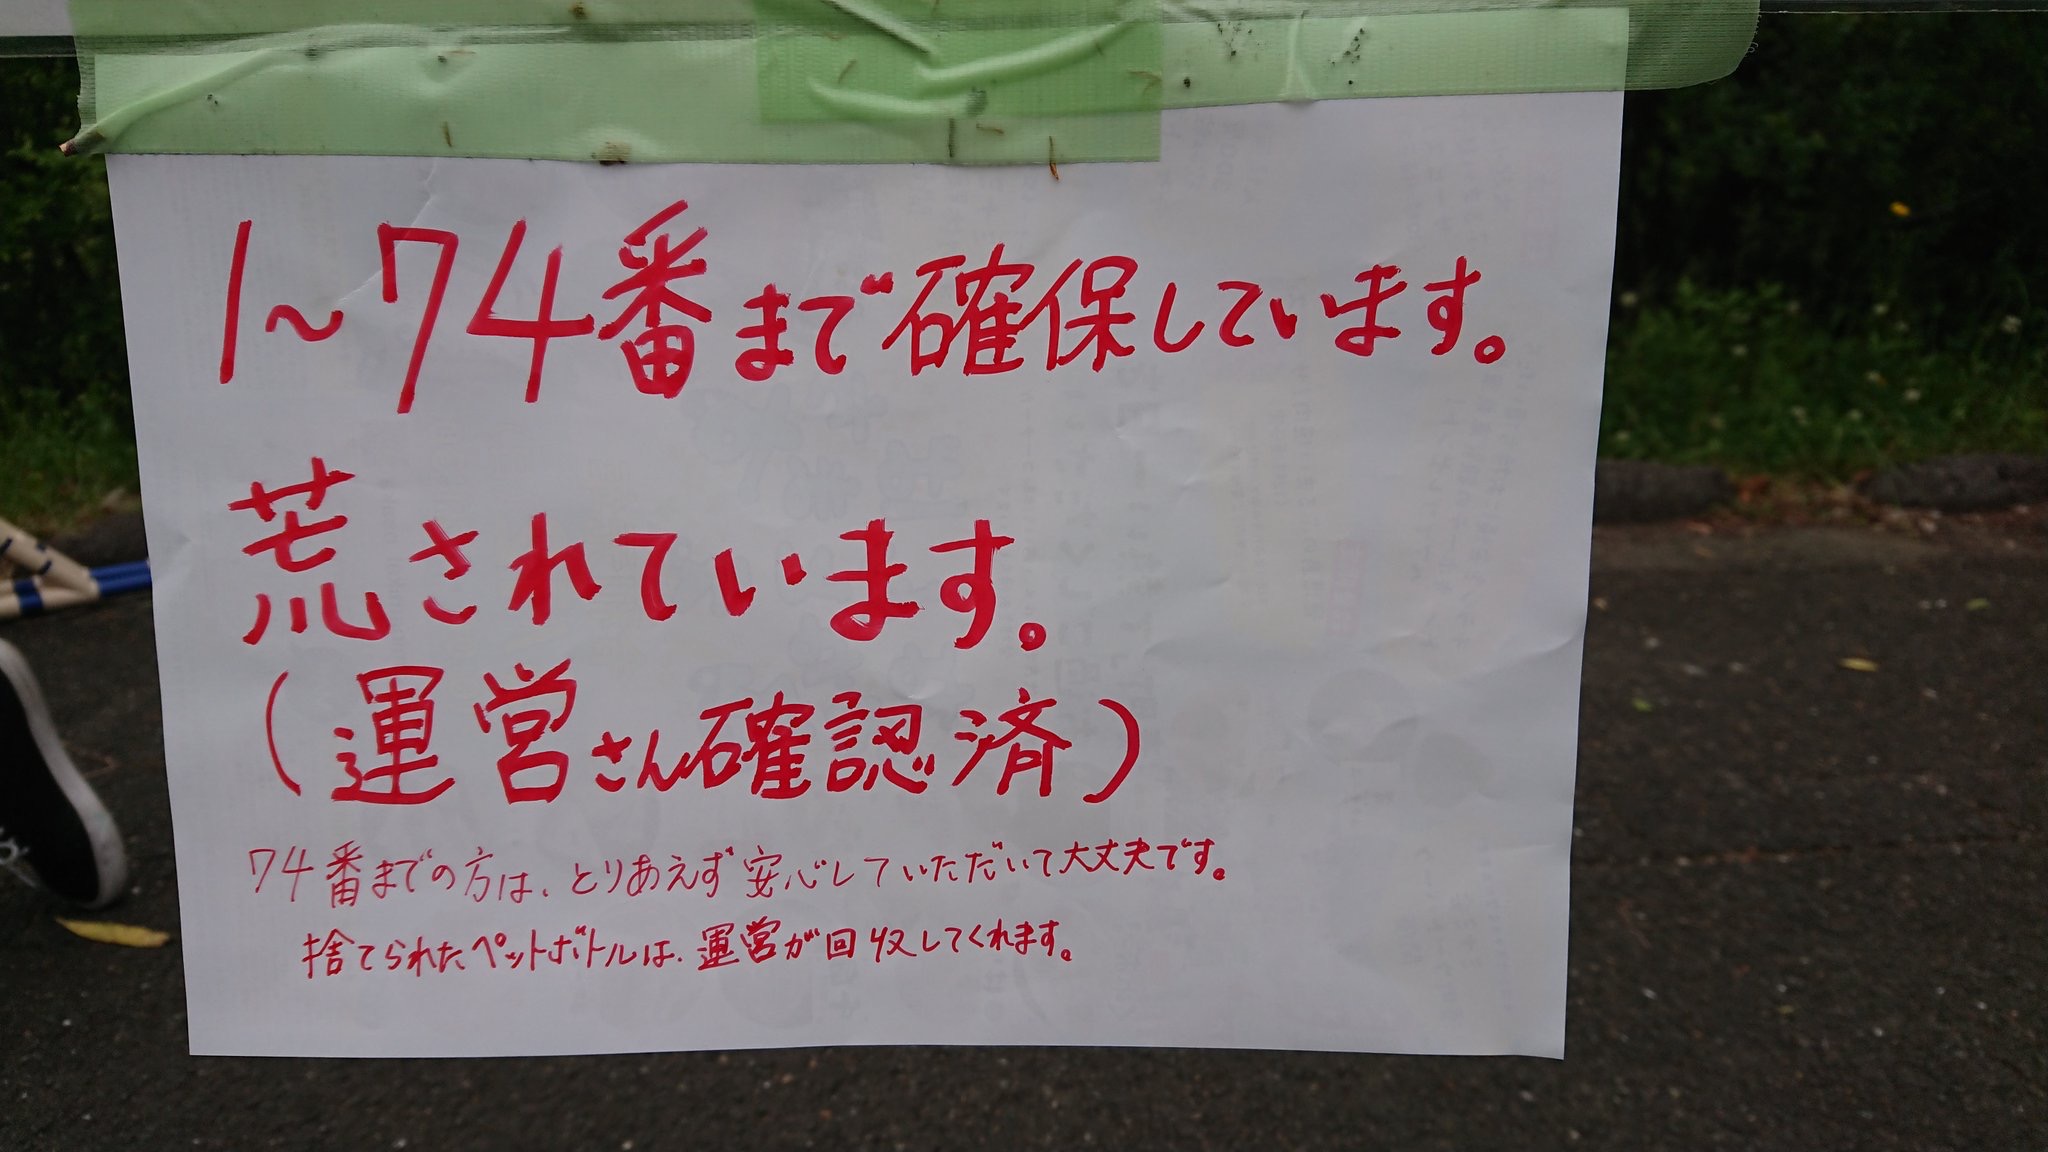 1〜74番まで確保しています。
荒されています。
(運営さん確認済)
74番までの方は、とりあえず安心していただいて大丈夫です。
捨てられたペットボトルは、運営が回収してくれます。